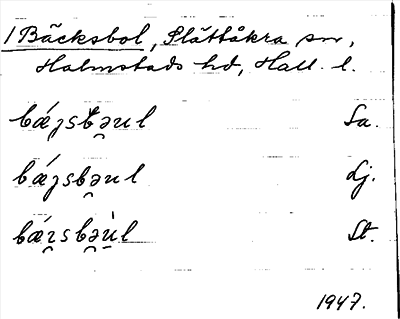 1 Bäcksbol, Slättåkra sn,
Halmstads hd, Hall. l.
bǽʒsbə̯ul Sa.
bǽʒsbə̯ul Lj.
bǽʒ̯sbə̯ù̯l St.
1947.